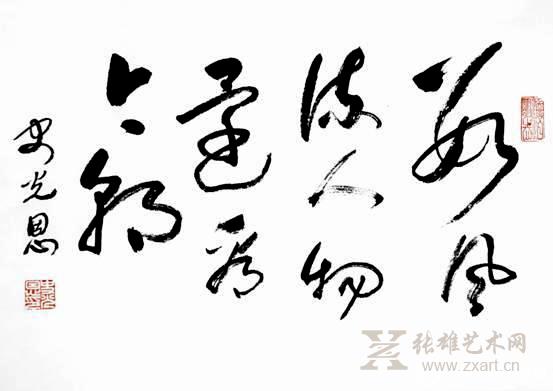 數風
流人物
還看
今朝
史光恩
张雄艺术网
www.zxart.cn